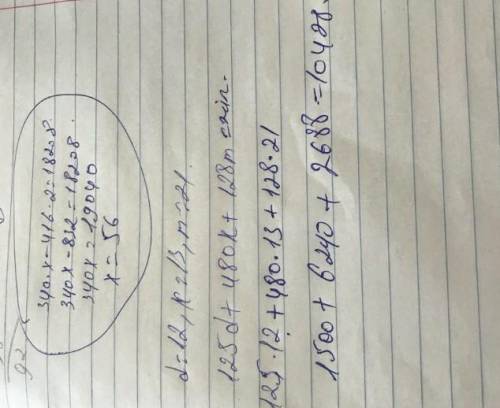 340·x-416·2=18208
340x-832=18208
340x=19040
x=56
d=12, k=13, m=21.
125d+480k+128m
125·12+480·13+128·21
1500+6240+2688=10428